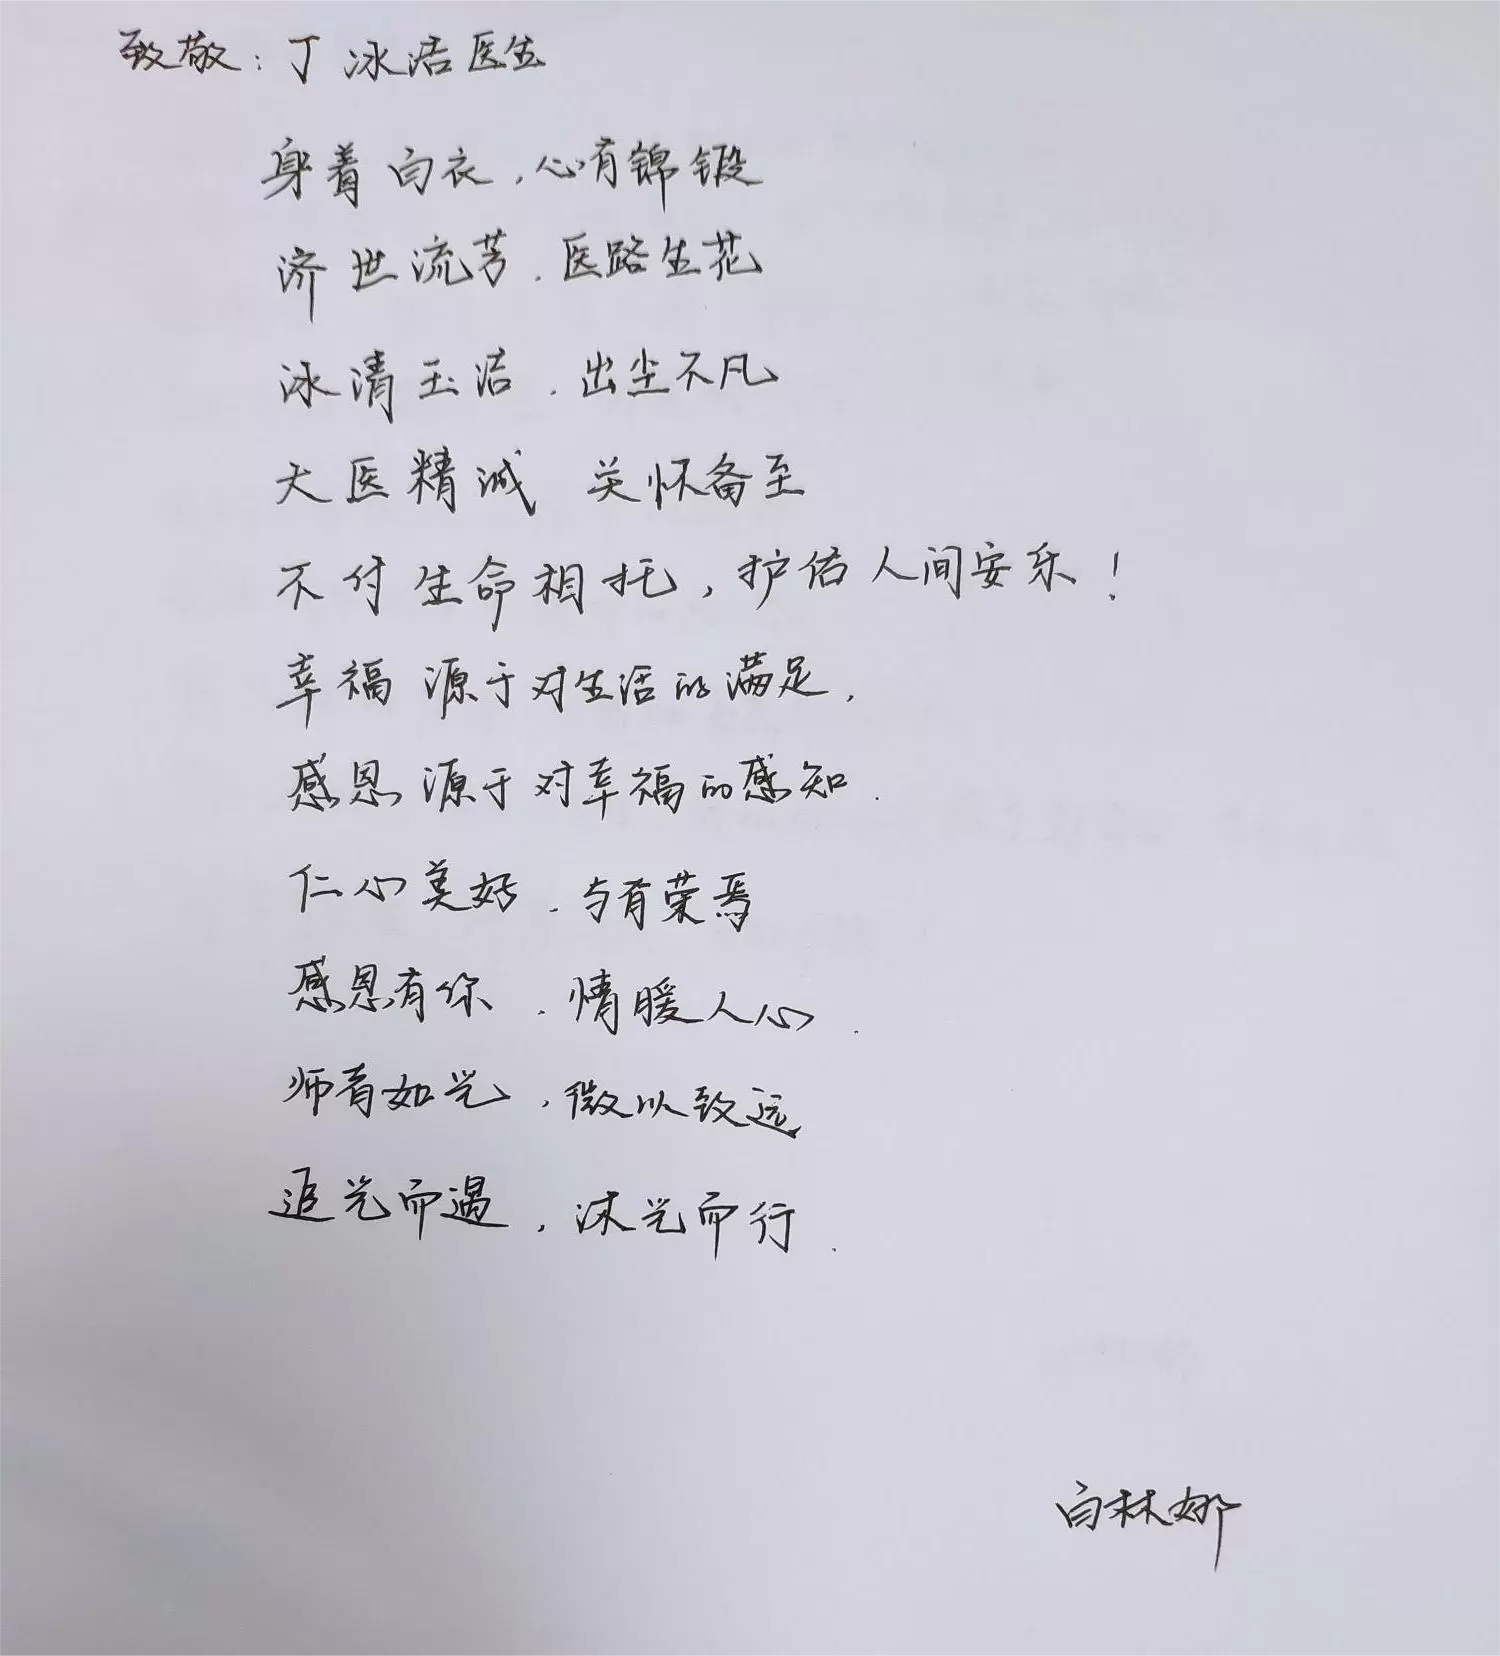 致敬：丁冰洁医生
身着白衣，心有锦锻
济世流芳．医路生花
冰清玉洁．出尘不凡
大医精诚 关怀备至
不付生命相托，护佑人间安乐！
幸福源于对生活的满足，
感恩源于对幸福的感知．
仁心美好．与有荣焉
感恩有你．情暖人心．
师者如光，微以致远
追光而遇，沐光而行．
白林娜